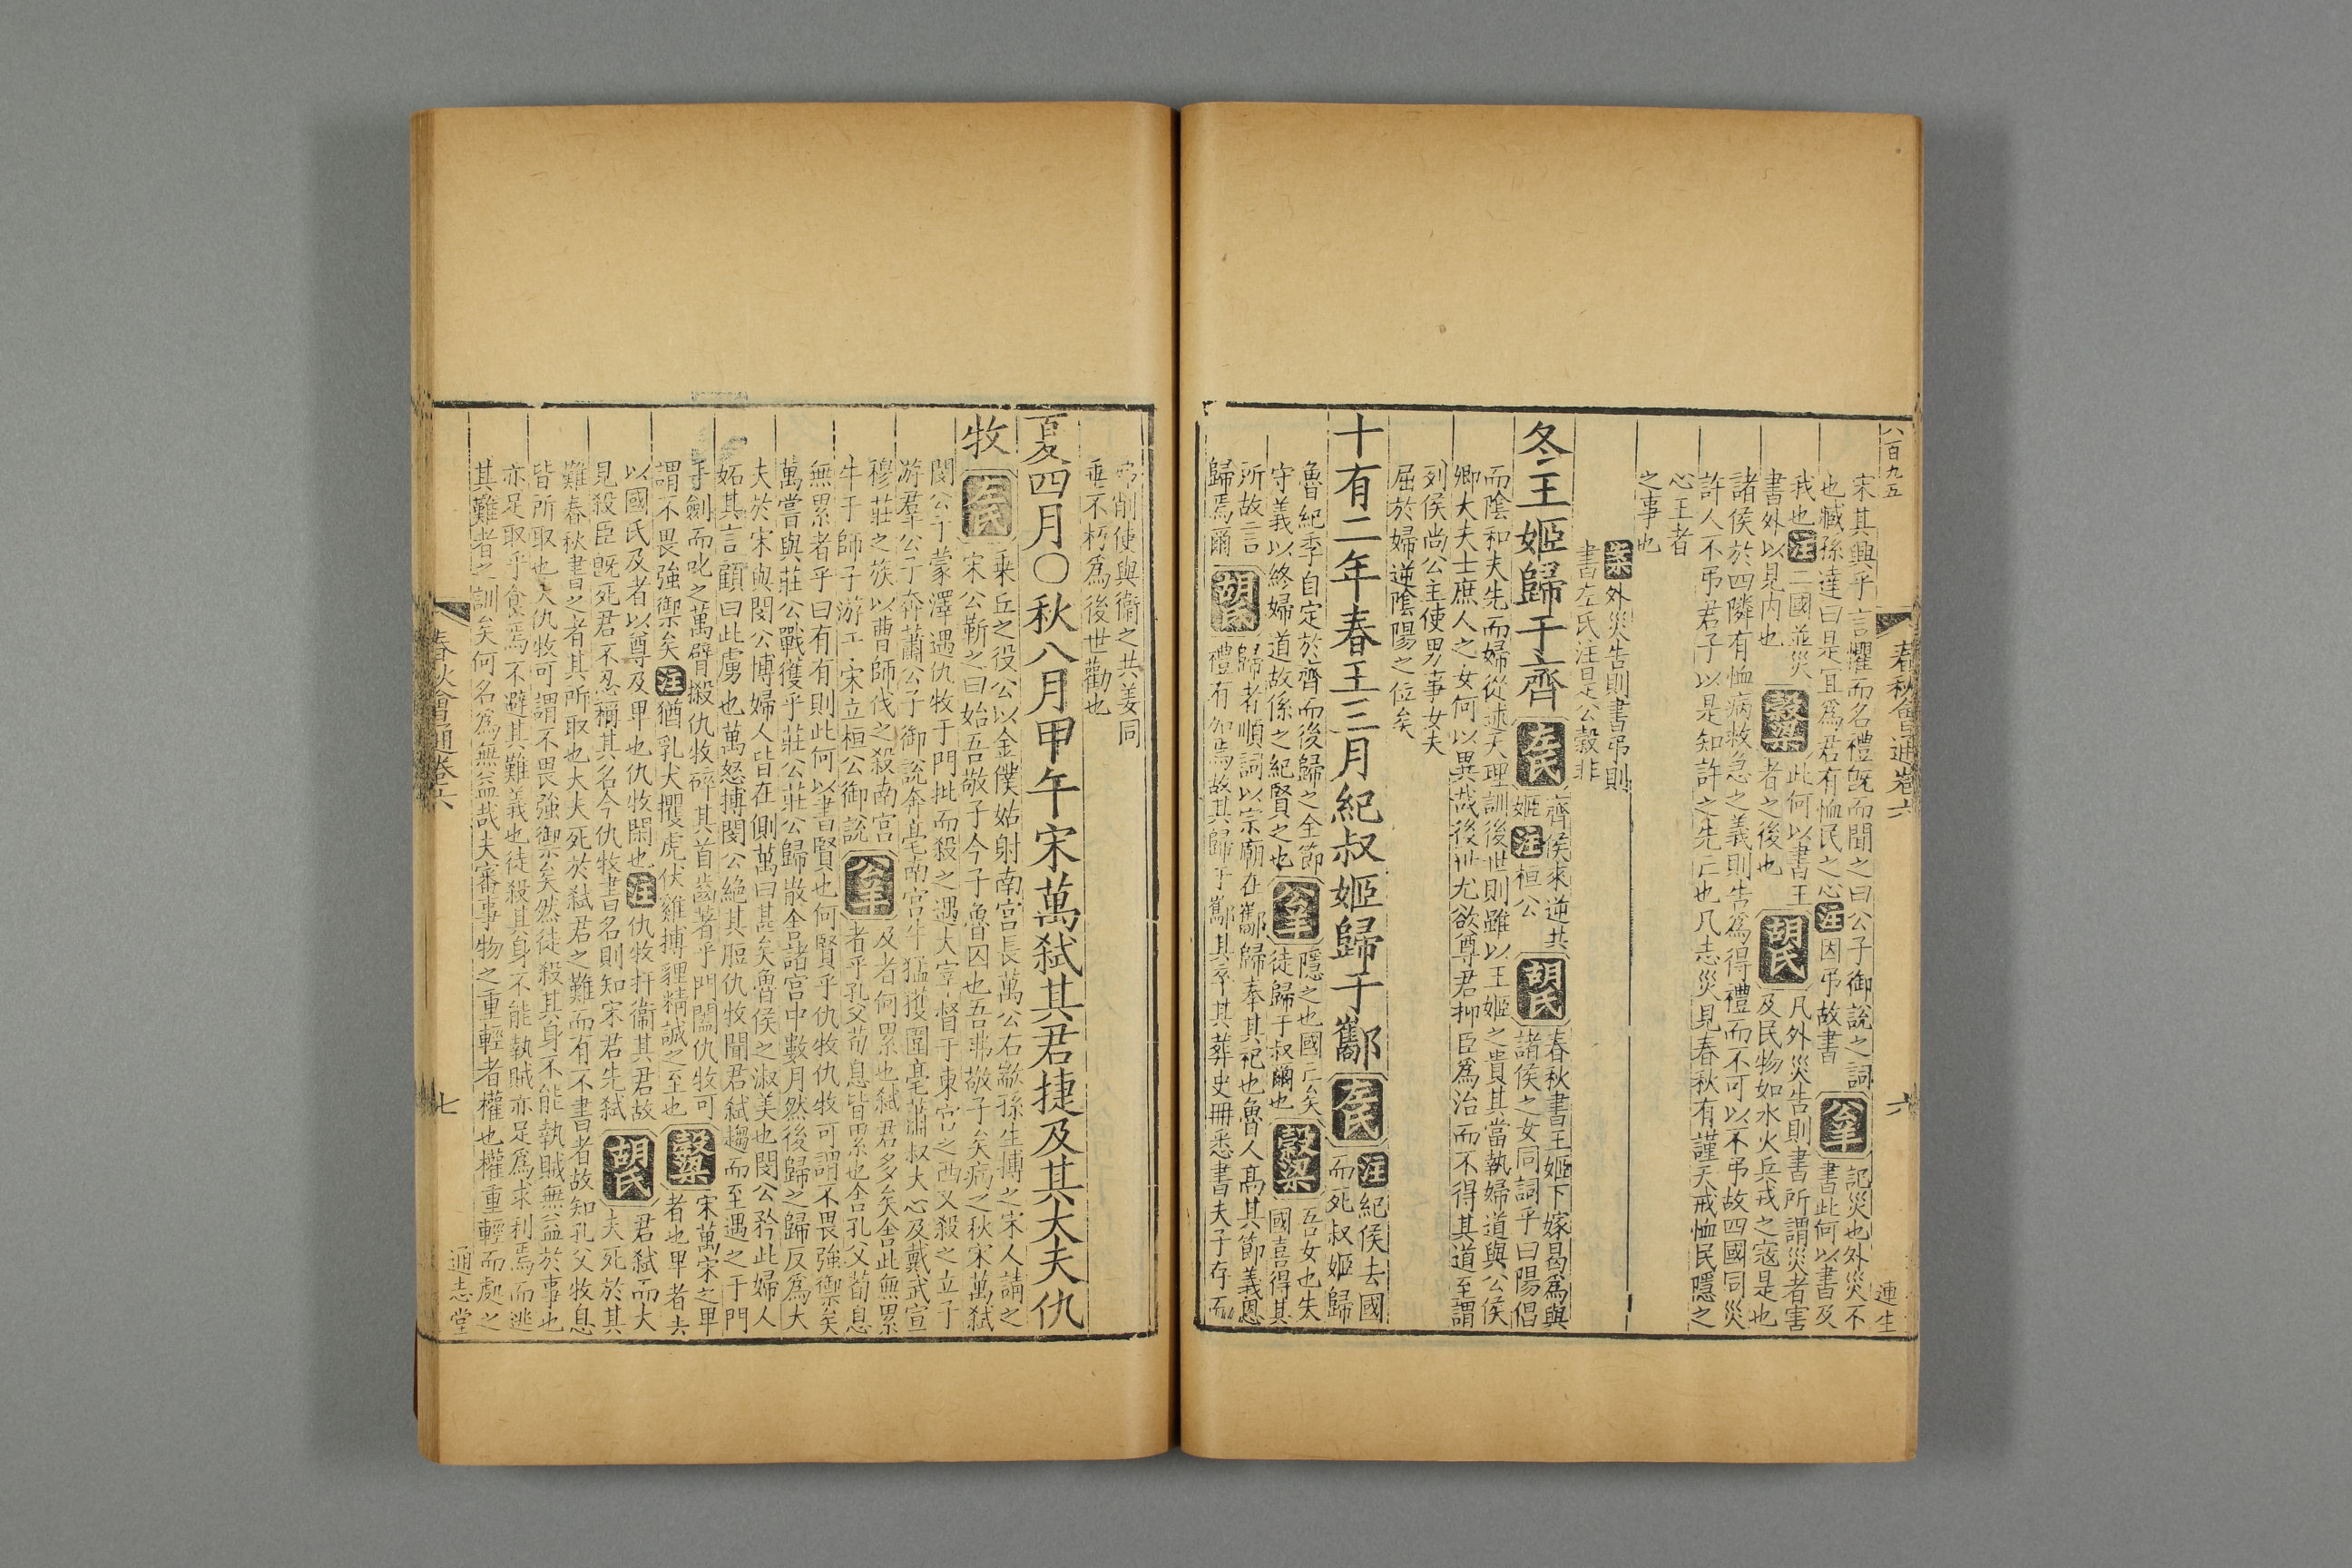 八百九五
春秋會通卷六
六
連生
宋其興乎言懼而名禮旣而聞之曰公子御說之詞
也臧孫達曰是宜爲君有恤民之心注因弔故書
公羊
記災也外災不
書此何以書及
我也注二國並災
書外以見内也
穀梁
此何以書王
者之後也
胡氏
凡外災告則書所謂災者害
及民物如水火兵戎之寇是也
諸侯於四隣有恤病救急之義則告爲得禮而不可以不弔故四國同災
許人不弔君子以是知許之先亡也凡志災見春秋有謹天戒恤民隱之
心王者
之事也
案外災告則書弔則
書左氏注是公穀非
冬王姬歸于齊
左氏
齊侯來逆共
姬注桓公
胡氏
春秋書王姬下嫁曷爲與
諸侯之女同詞乎曰陽倡
而陰和夫先而婦從述天理訓後世則雖以王姬之貴其當執婦道與公侯
卿大夫士庶人之女何以異哉後世尤欲尊君抑臣爲治而不得其道至謂
列侯尚公主使男事女夫
屈於婦逆陰陽之位矣
十有二年春王三月紀叔姬歸于酅
左氏
注紀侯去國
而死叔姬歸
魯紀季自定於齊而後歸之全節
守義以終婦道故係之紀賢之也
公羊
隱之也國亡矣
徒歸于叔爾也
穀梁
吾女也失
國喜得其
所故言
歸焉爾
胡氏
歸者順詞以宗廟在酅歸奉其祀也魯人高其節義恩
禮有加焉故其歸于酅其卒其葬史冊悉書夫子存而
弗削使與衛之共姜同
垂不朽爲後世勸也
夏四月〇秋八月甲午宋萬弑其君捷及其大夫仇
牧
左氏
乘丘之役公以金僕姑射南宮長萬公右歂孫生搏之宋人請之
宋公靳之曰始吾敬子今子魯囚也吾弗敬子矣病之秋宋萬弑
閔公于蒙澤遇仇牧于門批而殺之遇大宰督于東宮之西又殺之立子
游羣公子奔蕭公子御說奔亳南宮牛猛獲圍亳蕭叔大心及戴武宣
穆莊之族以曹師伐之殺南宮
牛于師子游于宋立桓公御說
公羊
及者何累也弑君多矣舍此無累
者乎孔父荀息皆累也舍孔父荀息
無累者乎曰有有則此何以書賢也何賢乎仇牧仇牧可謂不畏強禦矣
萬嘗與莊公戰獲乎莊公莊公歸散舍諸宮中數月然後歸之歸反爲大
夫於宋與閔公博婦人皆在側萬曰甚矣魯侯之淑美也閔公矜此婦人
妬其言顧曰此虜也萬怒搏閔公絕其脰仇牧聞君弑趨而至遇之于門
手劍而叱之萬臂摋仇牧碎其首齒著乎門闔仇牧可
謂不畏強禦矣注猶乳犬攫虎伏雞搏貍精誠之至也
穀梁
宋萬宋之卑
者也卑者夫
以國氏及者以尊及卑也仇牧閑也注仇牧扞衞其君故
見殺臣旣死君不忍稱其名今仇牧書名則知宋君先弑
胡氏
君弑而大
夫死於其
難春秋書之者其所取也大夫死於弑君之難而有不書者故知孔父牧息
皆所取也夫仇牧可謂不畏強禦矣然徒殺其身不能執賊無益於事也
亦足取乎食焉不避其難義也徒殺其身不能執賊亦足爲求利焉而逃
其難者之訓矣何名爲無益哉夫審事物之重輕者權也權重輕而處之
春秋會通卷六
七
通志堂